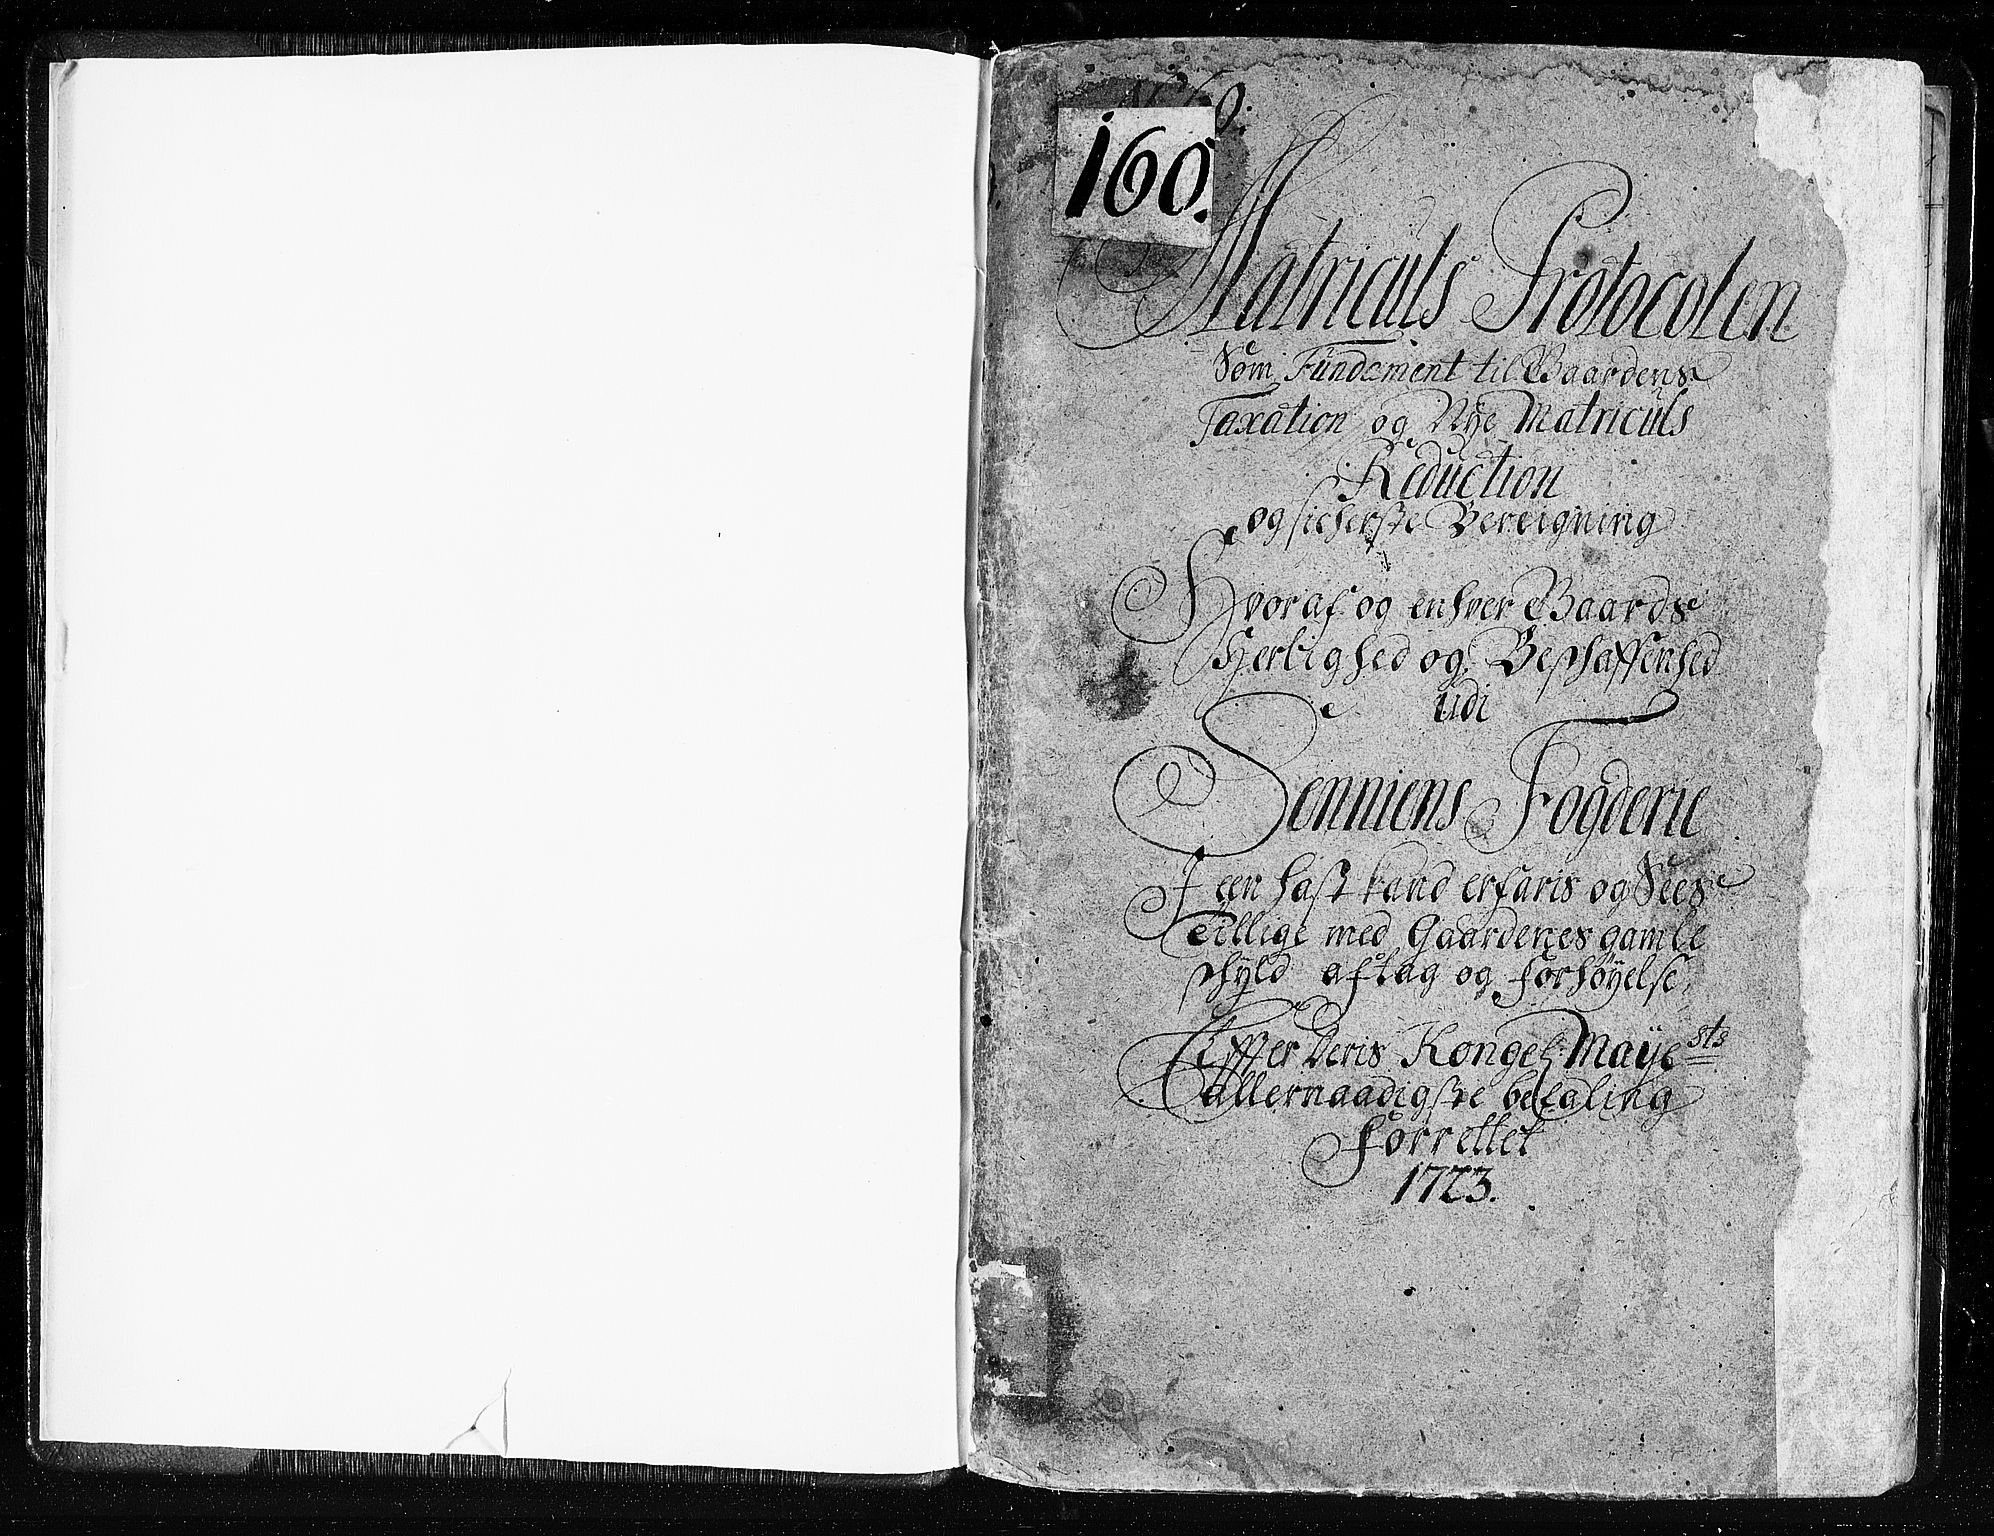 160.
Matriculs Protocolen
Som Fundament til Gaardens
Taxation og Nÿe Matriculs
Reduction
og sicherste Bereigning
Hvoraf og enhver Gaards
Herlighed og Beskaffenhed
udi
Senniens Fogderie
I een hast kand erfaris og Sees
Tillige med Gaardenes gamle
skyld aftag og forhøyelse
Effter Deris Kongel: Maye sts
allernaadigste befaling
forrettet
1723.